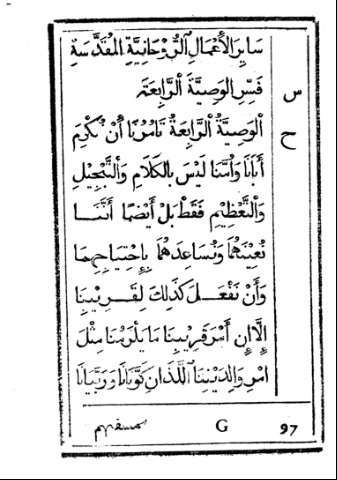 سَايِرَ الْأَعْمَالِ الرُّوْحَانِيَّةِ الْمُقَدَّسَةِ
س فَسِّرِ الْوَصِيَّةَ الْرَّابِعَةَ
ح اَلْوَصِيَّةُ الْرَّابِعَةُ تَامُرُنَا أَنْ نُكْرِمَ
أَبَانَا وَأُمَّنَا لَيْسَ بِالْكَلَامِ وَالْتَّبْجِيْلِ
وَالْتَّعْظِيْمِ فَقَطْ بَلْ أَيْضًا أَنَّنَا
نُعِيْنَهُمَا وَنُسَاعِدَهُمَا بِإِحْتِيَاجِهِمَا
وَأَنْ نَفْعَلَ كَذَلِكَ لِقَرِيْبِنَا
إِلَّا إِن أَمْرَ قَرِيْبِنَا مَا يَلْزَمُنَا مِثْلَ
امْرِ وَالِدِيْنِنَا اَللَّذَانِ كَوَّنَانَا وَرَبَّيَانَا
97 G